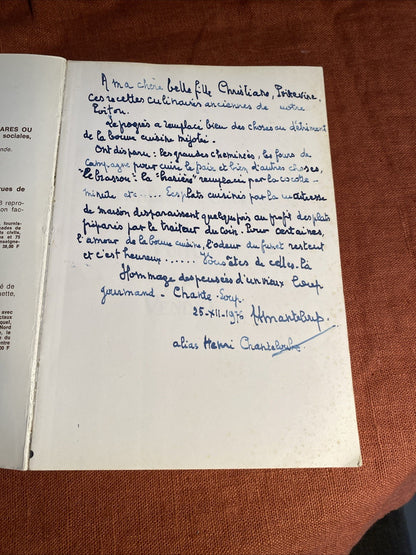 ARES OU
sociales,
nde.
ues de
8 repro-
on fac-
fournie-
cades de
s civils,
es et 75
nseigne-
38,00 F
sé de
nette,
avec
ciaux
quel,
Nord
e, la
dre
entre
,00 F
A ma chère belle fille Christiane, Poitevine,
ces recettes culinaires anciennes de notre
Poitou.
Le progrès a remplacé bien des choses au détriment
de la bonne cuisine mijotée.
Ont disparu : les grandes cheminées, les fours de
campagne pour cuire le pain et bien d'autres choses,
"le brassou": la "basière" remplacé par la cocotte-
minute etc ..... Les plats cuisinés par la maîtresse
de maison disparaissent quelquefois au profit des plats
préparés par le traiteur du coin. Pour certaines,
l'amour de la bonne cuisine, l'odeur du fumet restent
et c'est heureux ...... Vous êtes de celles-là
Hommage des pensées d'un vieux Loup
gourmand - Chante-Loup.
25-XII-1976 HChanteloup.
alias Henri Chanteloube